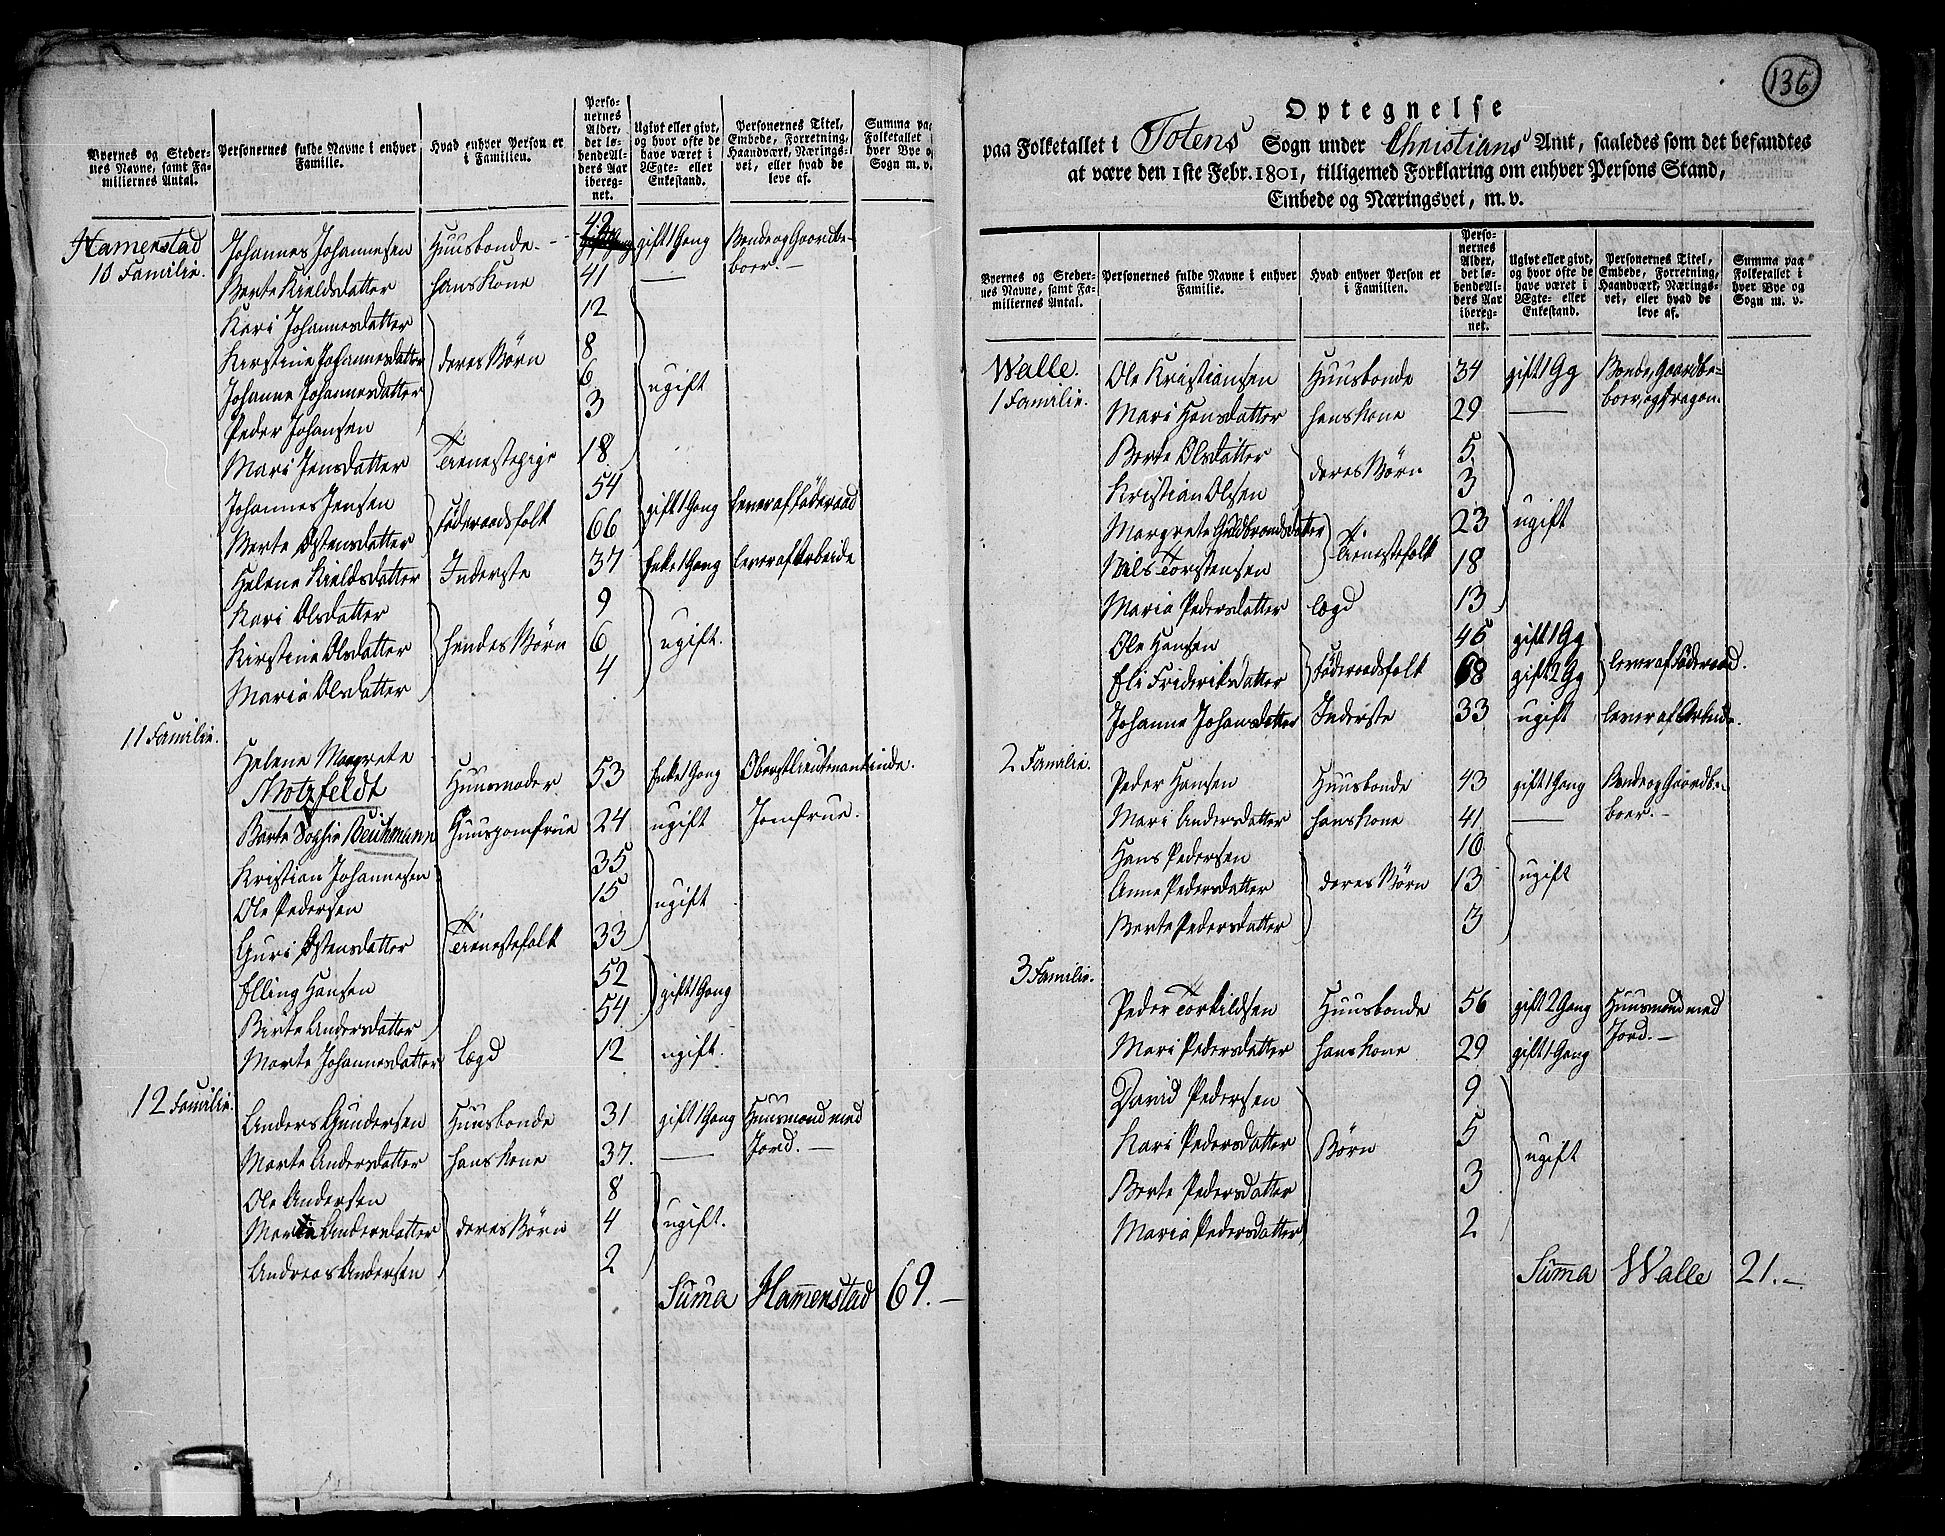 Byernes og Steder-
nes Navne, samt Fa-
miliernes Antal.
Personernes fulde Navne i enhver
Familie.
Hvad enhver Person er
i Familien.
Perso-
nernes
Alder,
det lø-
bende Al-
ders Aar
ibereg-
net.
Ugivt eller givt,
og hvor ofte de
have været i
Ægte- eller
Enkestand.
Personernes Titel,
Embede, Forretning,
Haandværk, Nærings-
vei, eller hvad de
leve af.
Summa paa
Folketallet i
hver Bye og
Sogn m. v.
Hamenstad
10 Familie.
Johannes Johannesen Huusbonde 42 gift 1 Gang Bonde og Gaardbe-
boer.
Berte Kieldsdatter hans Kone 41 —
Kari Johannesdatter 12
Kirstine Johannesdatter deres Børn 8
Johanne Johannesdatter 6 ugift
Peder Johansen 3
Mari Jensdatter Tienestepige 18
Johannes Jensen Føderaadsfolk 54 gift 1 Gang lever af Føderaad
Berte Østensdatter 66
Helene Kieldsdatter Inderste 37 Enke 1 Gang lever af Arbeide
Kari Olsdatter 9
Kirstine Olsdatter hendes Børn 6 ugift.
Maria Olsdatter 4
11 Familie.
Helene Margrete
Motzfeldt Huusmoder 53 Enke 1 Gang Oberstlieutenantinde.
Berte Sophie Beichmann Huusjomfrue 24 ugift Jomfrue.
Kristian Johannesen 35
Ole Pedersen 15 ugift
Guri Østensdatter Tienestefolk 33
Elling Hansen 52 gift 1 Gang
Birte Andersdatter 54
Marte Johannesdatter lægd 12 ugift.
12 Familie.
Anders Gundersen Huusbonde 31 gift 1 Gang Huusmand med
Jord.
Marte Andersdatter hans Kone 37. —
Ole Andersen 8
Andersdatter deres Børn 4 ugift.
Andreas Andersen 2
Suma Hamenstad 69.
136
Optegnelse
paa Folketallet i Totens Sogn under Christians Amt, saaledes som det befandtes
at være den 1ste Febr. 1801, tilligemed Forklaring om enhver Persons Stand,
Embede og Næringsvei, m. v.
Byernes og Steder-
nes Navne, samt Fa-
miliernes Antal.
Personernes fulde Navne i enhver
Familie.
Hvad enhver Person er
i Familien.
Perso-
nernes
Alder,
det lø-
bende Al-
ders Aar
ibereg-
net.
Ugivt eller givt,
og hvor ofte de
have været i
Ægte- eller
Enkestand.
Personernes Titel,
Embede, Forretning,
Haandværk, Nærings-
vei, eller hvad de
leve af.
Summa paa
Folketallet i
hver Bye og
Sogn m. v.
Walle.
1 Familie.
Ole Kristiansen Huusbonde 34 gift 1 Gg Bonde, Gaardbe-
boer, og Dragon.
Mari Hansdatter hans Kone 29 —
Berte Olsdatter deres Børn 5
Kristian Olsen 3
Margrete Guldbrandsdatter Tienestefolk 23 ugift
Nils Torstensen 18
Maria Pedersdatter lægd 13
Ole Hansen Føderaadsfolk 45 gift 1 Gg lever af Føderaad.
Eli Frideriksdatter 68 gift 2 Gg
Johanne Johansdatter Inderste 33 ugift lever af Arbeide.
2 Familie.
Peder Hansen Huusbonde 43 gift 1 Gang Bonde og Gaardbe-
boer.
Mari Andersdatter hans Kone 41 —
Hans Pedersen 16
Anne Pedersdatter deres Børn 13 ugift
Berte Pedersdatter 3
3 Familie.
Peder Torkildsen Huusbonde 56 gift 2 Gang Huusmand med
Jord.
Mari Pedersdatter hans Kone 29 gift 1 Gang
David Pedersen 9
Kari Pedersdatter Børn 5 ugift
Berte Pedersdatter 3
Maria Pedersdatter 2
Suma Walle 21.